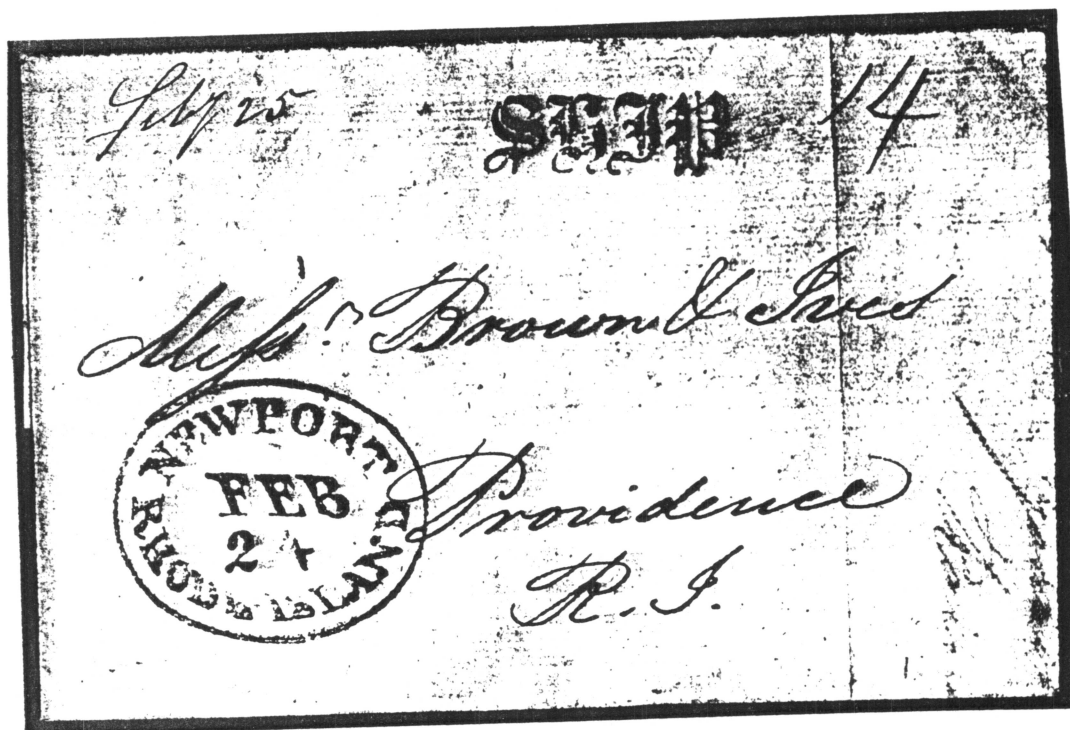 Feby 25
SHIP
14
Mess.rs Brown & Ives
NEWPORT
FEB
24
RHODE ISLAND
Providence
R. I.